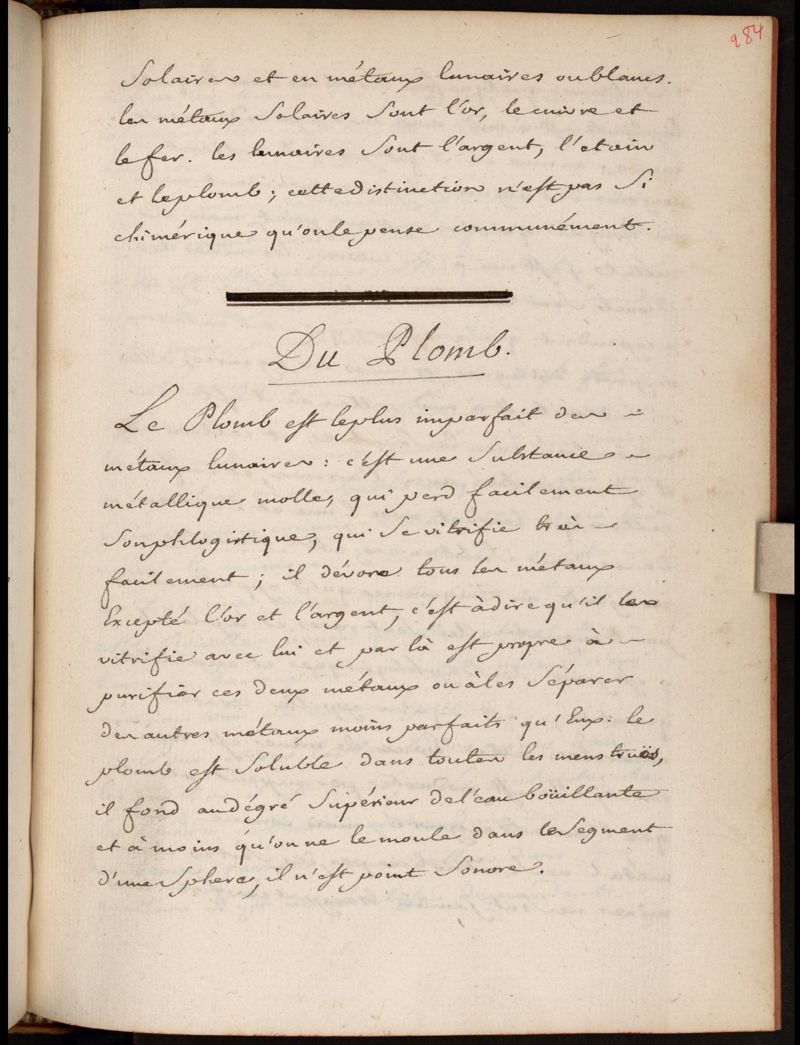 284
Solaires et en métaux lunaires ou blancs.
les métaux Solaires Sont l'or, le cuivre et
le fer. les lunaires Sont l'argent, l'etain
et le plomb; cette distinction n'est pas Si
chimérique qu'on le pense communément.
Du Plomb.
Le Plomb est le plus imparfait des
métaux lunaires: c'est une Substance
métallique molle, qui perd facilement
Son phlogistique, qui Se vitrifie très
facilement; il dévore tous les métaux
Excepté l'or et l'argent, c'est à dire qu'il les
vitrifie avec lui et par là est propre à
purifier ces deux métaux ou à les Séparer
des autres métaux moins parfaits qu'Eux: le
plomb est Soluble dans toutes les menstruës,
il fond au dégré Supérieur de l'eau boüillante
et à moins qu'on ne le moule dans le Segment
d'une Sphere, il n'est point Sonore.